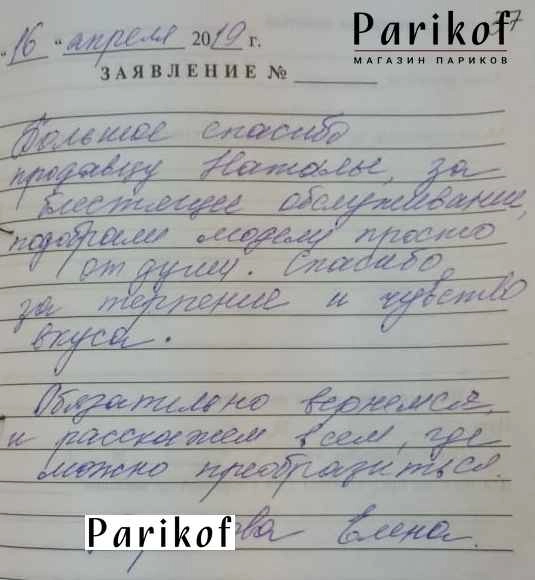 Parikof
МАГАЗИН ПАРИКОВ
37
"16" апреля 2019 г.
ЗАЯВЛЕНИЕ №
Большое спасибо
продавцу Наталье, за
блестящее обслуживание,
подобрали модель просто
от души. Спасибо
за терпение и чувство
вкуса.
Обязательно вернемся
и расскажем всем, где
можно преобразиться.
Parikof ва Елена.